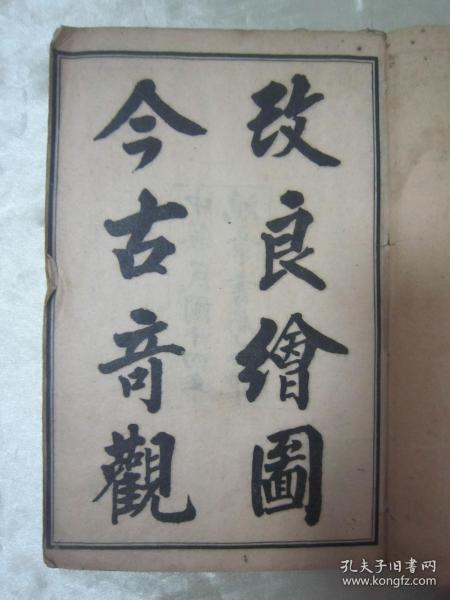 改良繪圖
今古奇觀
孔夫子旧书网
www.kongfz.com